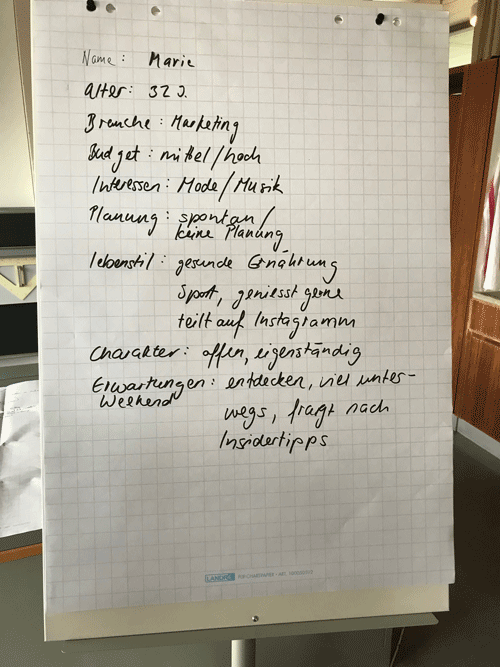 Name: Marie
Alter: 32 J.
Branche: Marketing
Budget: mittel/hoch
Interessen: Mode/Musik
Planung: spontan/
keine Planung
lebenstil: gesunde Ernährung
Sport, geniesst gerne
teilt auf Instagramm
Charakter: offen, eigenständig
Erwartungen: entdecken, viel unter-
Weekend
wegs, fragt nach
Insidertipps